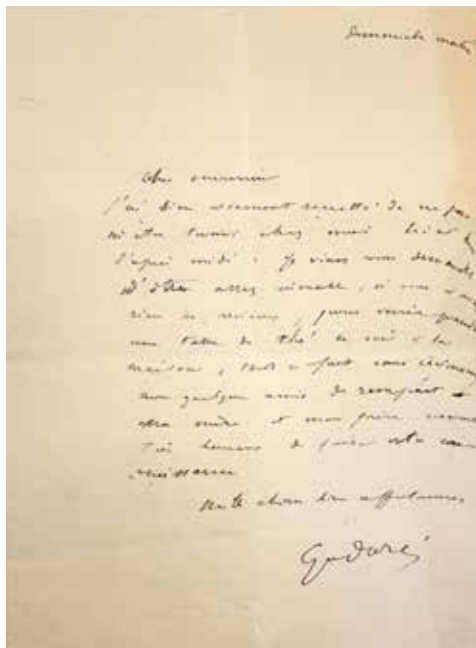 Dimanche matin
Cher
J'ai bien vivement regretté de ne pas
m'être trouvé chez moi hier
l'après midi. Je viens vous demander
d'être assez aimable, si vous n'avez
rien de mieux, pour venir prendre
une tasse de thé ce soir à la
maison, tout à fait sans cérémonie
avec quelques amis
ma mère et mon frère seront
très heureux de faire votre con
naissance
Mille choses bien affectueuses
Gv Doré